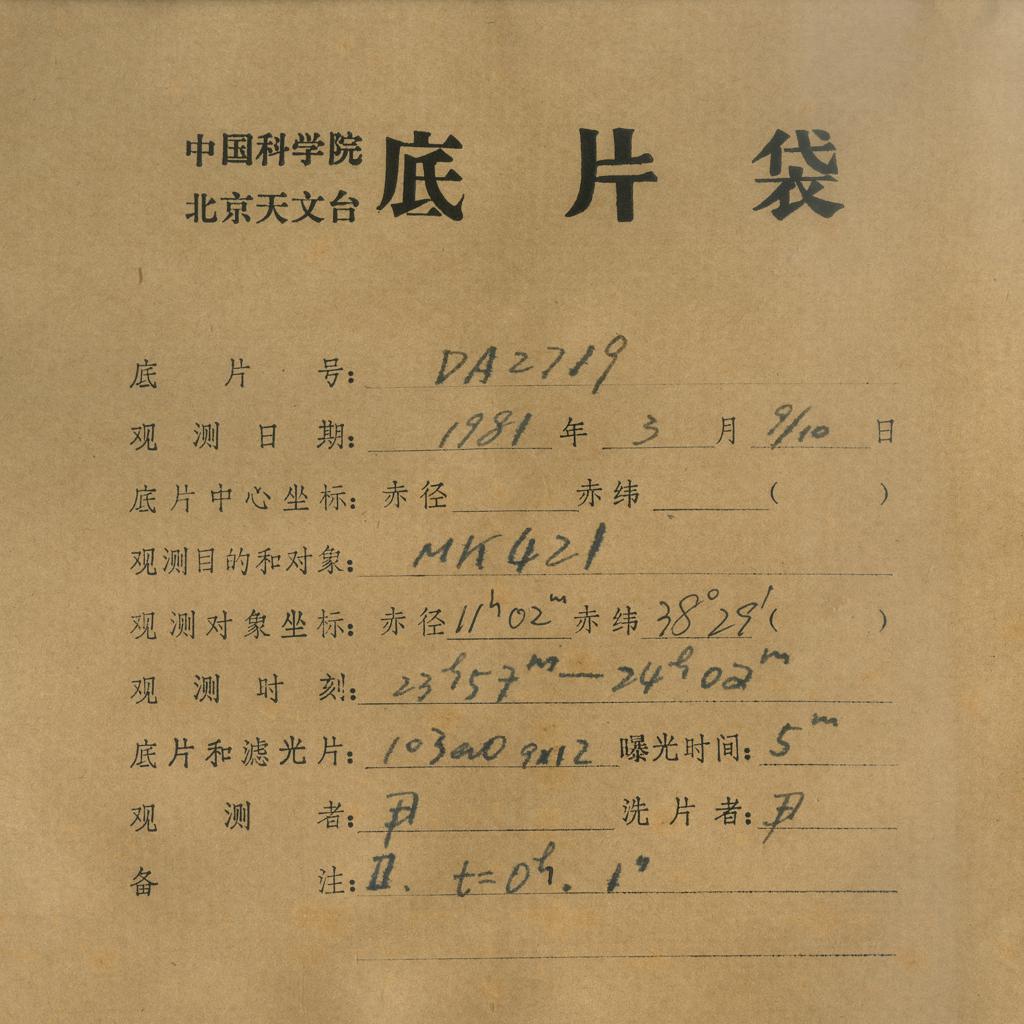 中国科学院
北京天文台
底片袋
底片号: DA2719
观测日期: 1981年3月9/10日
底片中心坐标: 赤径 赤纬 ( )
观测目的和对象: MK421
观测对象坐标: 赤径 11ʰ02ᵐ 赤纬 38°29′ ( )
观测时刻: 23ʰ57ᵐ—24ʰ02ᵐ
底片和滤光片: 103aO 9x12 曝光时间: 5ᵐ
观测者: 尹 洗片者: 尹
备注: II. t=0ʰ.